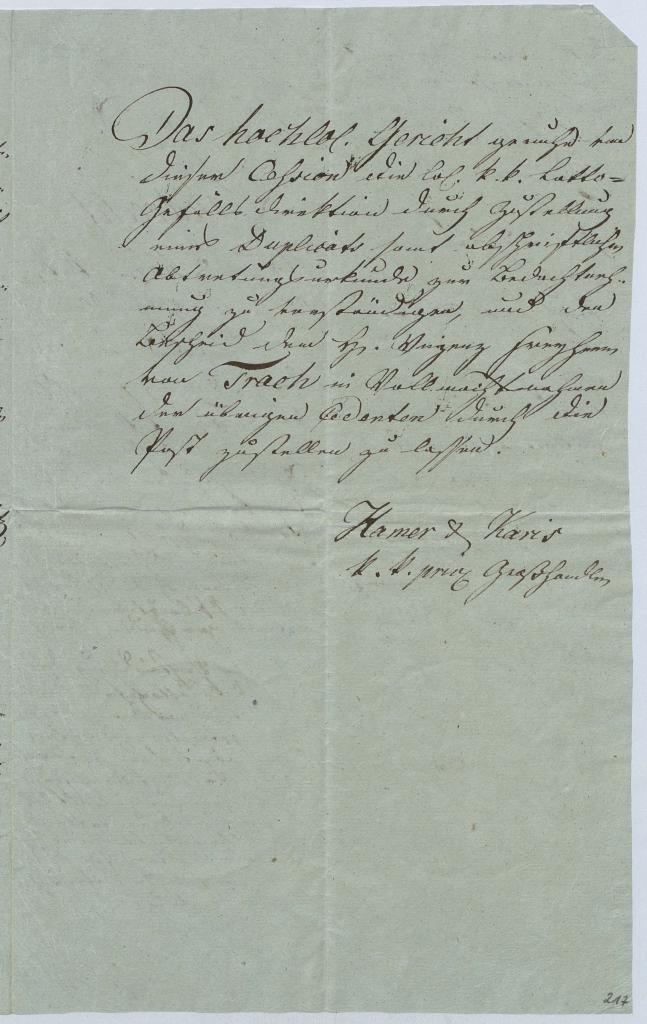 Das hochlöl. Gericht geruhe von
dieser Cession die löl. k. k. Lotto=
Gefälls Direktion durch Zustellung
eines Duplicats samt abschriftlichen
Abtretungsurkunde zur Bedachtneh-
mung zu verständigen, und den
Bescheid dem H. Vinzenz Freyherrn
von Trach in Vollmachtsnahmen
der übrigen Cedenten durch die
Post zustellen zu lassen.
Hamer & Karis
k. k. priv Großhandler
217